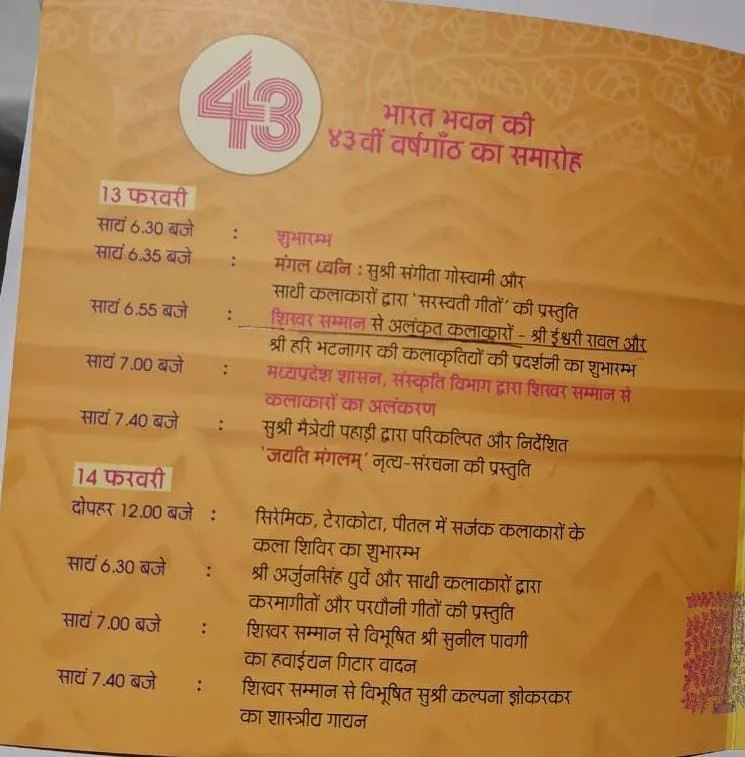 43
भारत भवन की
४३वीं वर्षगाँठ का समारोह
13 फरवरी
सायं 6.30 बजे : शुभारम्भ
सायं 6.35 बजे : मंगल ध्वनि : सुश्री संगीता गोस्वामी और
साथी कलाकारों द्वारा 'सरस्वती गीतों' की प्रस्तुति
सायं 6.55 बजे : शिखर सम्मान से अलंकृत कलाकारों - श्री ईश्वरी रावल और
श्री हरि भटनागर की कलाकृतियों की प्रदर्शनी का शुभारम्भ
सायं 7.00 बजे : मध्यप्रदेश शासन, संस्कृति विभाग द्वारा शिखर सम्मान से
कलाकारों का अलंकरण
सायं 7.40 बजे : सुश्री मैत्रेयी पहाड़ी द्वारा परिकल्पित और निर्देशित
'जयति मंगलम्' नृत्य-संरचना की प्रस्तुति
14 फरवरी
दोपहर 12.00 बजे : सिरेमिक, टेराकोटा, पीतल में सर्जक कलाकारों के
कला शिविर का शुभारम्भ
सायं 6.30 बजे : श्री अर्जुनसिंह धुर्वे और साथी कलाकारों द्वारा
करमागीतों और परधौनी गीतों की प्रस्तुति
सायं 7.00 बजे : शिखर सम्मान से विभूषित श्री सुनील पावगी
का हवाईयन गिटार वादन
सायं 7.40 बजे : शिखर सम्मान से विभूषित सुश्री कल्पना झोकरकर
का शास्त्रीय गायन